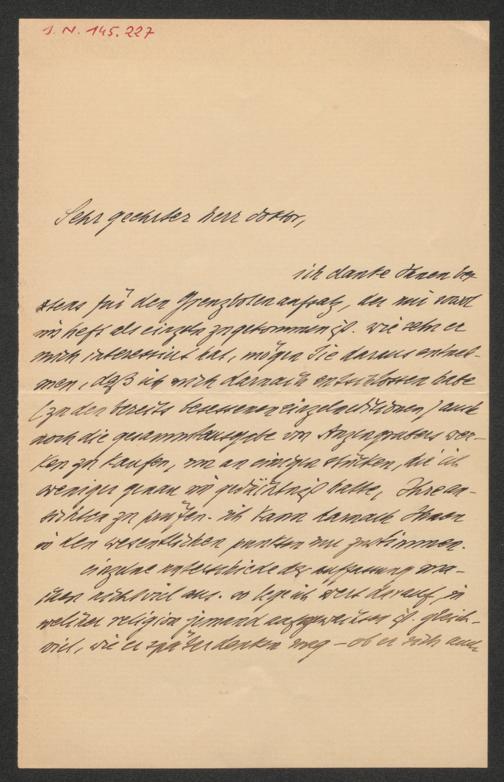 J. N. 145.227
Sehr geehrter herr doktor,
ich danke Ihnen be-
stens für den Grenzbotenaufsatz, der mir
ins heft als einzeln zugekommen ist. wie sehr er
mich interessirt hat, mögen Sie daraus entneh-
men, daß ich mich darnach entschlossen habe
(zu den bereits besessenen einzeleditionen) auch
noch die gesammtausgabe von Anzengrubers wer-
ken zu kaufen, um an einigen stücken, die ich
weniger genau im gedächtniß hatte, Ihre an-
sichten zu prüfen. ich kann darnach Ihnen
in den wesentlichen punkten nur zustimmen.
einzelne unterschiede der auffassung ma-
chen nicht viel aus. so lege ich wert darauf, in
welcher religion jemand aufgewachsen ist. gleich-
viel, wie er später denken mag – ob er sich auch